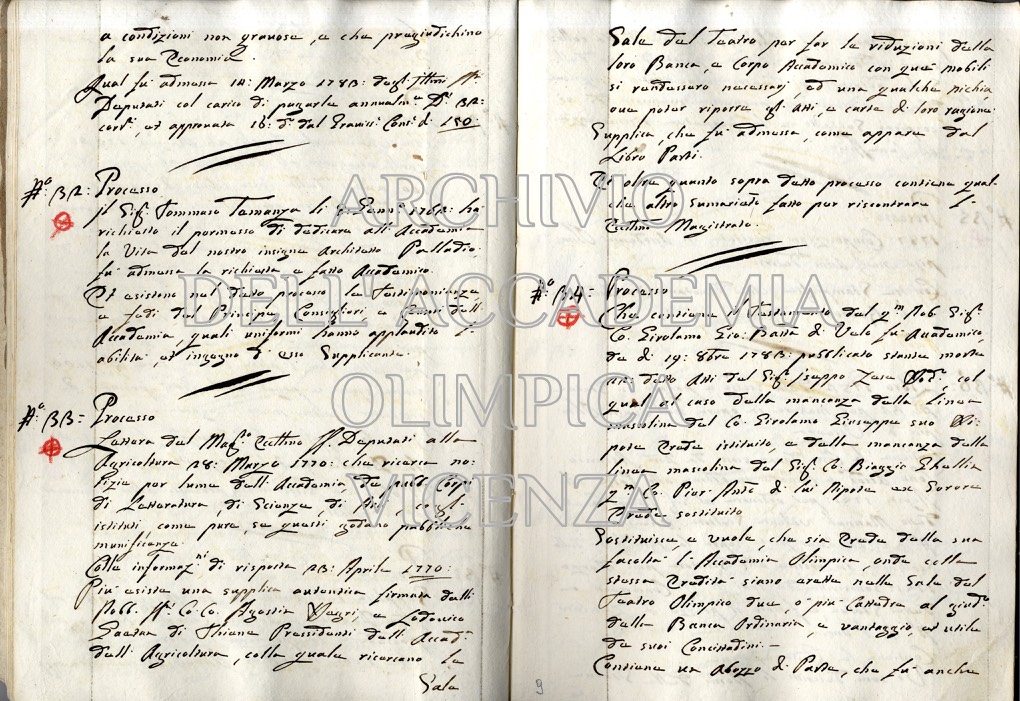 a condizioni non gravose, e che pregiudichino
la sua Economia.
Qual fu admessa 14: Marzo 1783: dagl' Ill.mi SS.ri
Deputati col carico di pagarle annualm.e D.i 32:
corr.i, et approvata 16: d.o dal Graviss.o Cons.o d. 150:
N.o 32: Processo
Il Sig.r Tommaso Temanza li Genn.o 1762: ha
richiesto il permesso di dedicare all' Accademia
la Vita del nostro insigne Architetto Palladio,
fu admessa la richiesta a fatto Accademico.
Et esistono nel dietro processo le Testimonianze
e fedi del Principe, Consiglieri, e dell'
Accademia, quali uniformi hanno applaudito l'
abilità, et ingegno di esso Supplicante.
N.o 33= Processo
Lettera del Mag.to Ecc.mo SS.ri Deputati alla
Agricoltura 28: Marzo 1770: che ricerca no-
tizie per lume dell' Accademia, de pub.i Corpi
di Letteratura, di Scienze, di Arti, co gl'
istituti, come pure, se questi godano pubblica
munificenza.
Colle informaz.ni di risposta 23: Aprile 1770:
Più esiste una supplica autentica firmata dalli
Nobb. SS.ri Co. Co. Agostin Vajeri, e Lodovico
Gaetan di Thiene Pressidenti dell' Accad.a
dell' Agricoltura, colla quale ricercano la
Sala
Sala del Teatro per far le riduzioni della
loro Banca, e Corpo Accademico con que' mobili
si rendessero necessarj, ed una qualche nichia,
ove poter riporre gl' Atti, e carte di loro ragione.
Supplica, che fu admessa, come appare dal
Libro Parti.
Et oltre quanto sopra detto processo contiene qual-
che altro Sumariato fatto per riscontrare l'
Ecc.mo Magistrato.
N.o 34= Processo
Che contiene il Testamento del q.m Nob. Sig.r
Co. Girolamo Gio: Batta di Velo fu Accademico,
de dì 19: 8bre 1783: pubblicato stante morte
ac: detto Atti del Sig.r Iseppo Zese Nod.o, col
qual al caso della mancanza della Linea
mascolina del Co. Girolamo Giuseppe suo Ni-
pote Erede istituito, e della mancanza della
linea mascolina del Sig.r Co. Biaggio Ghellin
q.m Co. Pier Ant.o di lui Nipote ex Sorore
Erede sostituito
Sostituisce, e vuole, che sia Erede della sua
facoltà l' Accademia Olimpica, onde colla
stessa Eredità siano erette nella Sala del
Teatro Olimpico due, o più Cattedre al giud.o
della Banca Ordinaria, a vantaggio, et utile
de suoi Concittadini.
Contiene un Abozzo di Parte, che fu anche
9
ARCHIVIO
DELL'ACCADEMIA
OLIMPICA
VICENZA